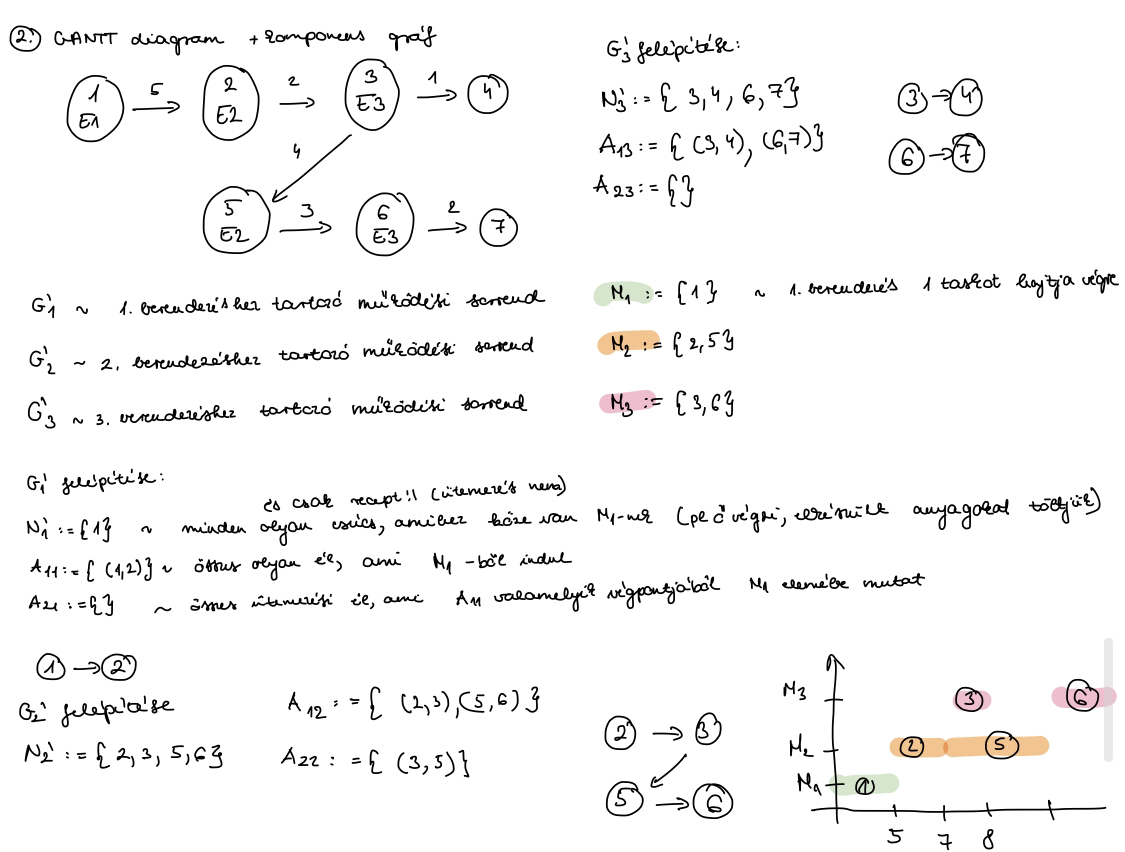 2. GANTT diagram + komponens gráf
1 E1 5 2 E2 2 3 E3 1 4
4
5 E2 3 6 E3 2 7
G₃' felépítése:
N₃' := { 3, 4, 6, 7}
A₁₃ := { (3,4), (6,7)}
A₂₃ := {}
3 → 4
6 → 7
G₁' ~ 1. berendezéshez tartozó működési sorrend
G₂' ~ 2. berendezéshez tartozó működési sorrend
G₃' ~ 3. berendezéshez tartozó működési sorrend
M₁ := {1} ~ 1. berendezés 1 taskot hajtja végre
M₂ := {2,5}
M₃ := {3,6}
G₁' felépítése:
és csak recept!! (ütemezés nem)
N₁' := {1} ~ minden olyan csúcs, amihez köze van M₁-nek (pl ő végzi, elkészült anyagokat töltjük)
A₁₁ := { (1,2)} ~ összes olyan él, ami M₁ -ből indul
A₂₁ := {} ~ összes ütemezési él, ami A₁₁ valamelyik végpontjából M₁ elemébe mutat
1 → 2
G₂' felépítése
N₂' := { 2, 3, 5, 6}
A₁₂ := { (2,3), (5,6) }
A₂₂ := { (3,5)}
2 → 3
5 → 6
M₃ 3 6
M₂ 2 5
M₁ 1
5 7 8